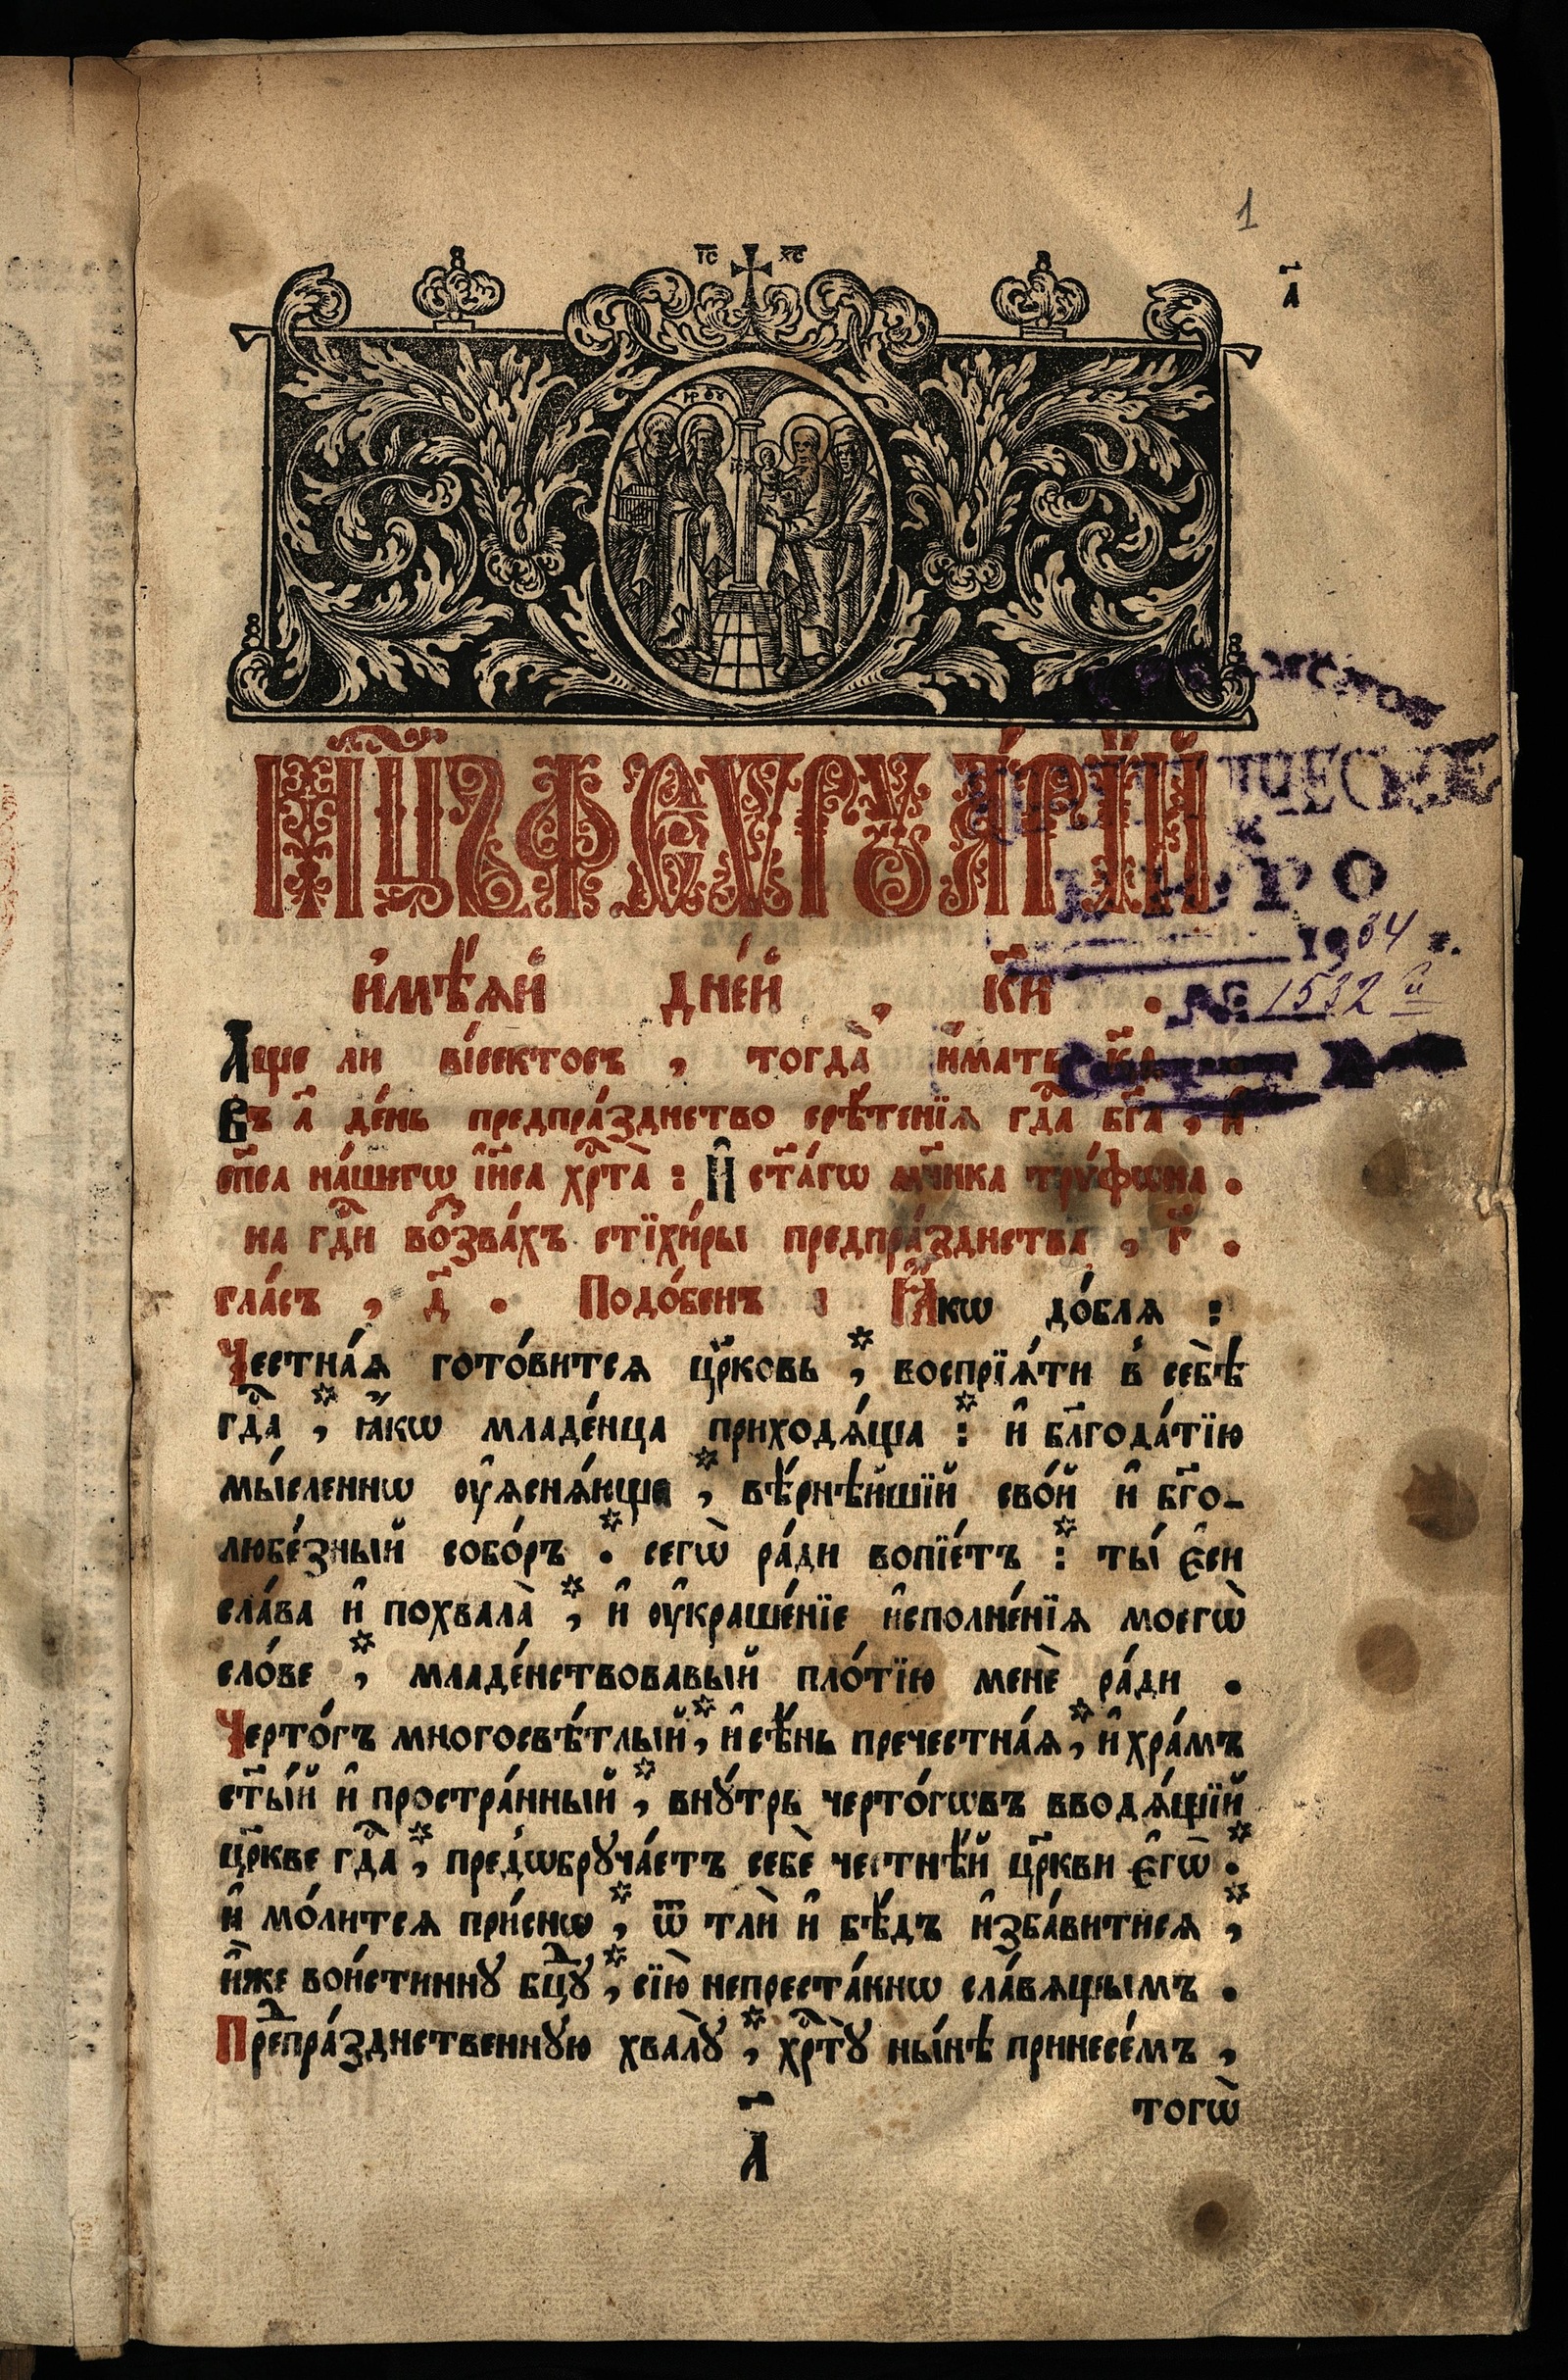 1
а҃
І҃С Х҃С
МР ѲУ
МЦ҃Ъ ФЕѴРꙋА́РІЙ
и҆мѣ́ѧй дне́й , к҃и .
А҆ще ли ві́сектосъ , тогда̀ и҆́мать к҃ѳ .
Въ а҃ де́нь предпра́зднство срѣ́тенїѧ гдⷭ҇а бг҃а , и҆
сп҃са на́шегѡ і҆и҃са хрⷭ҇та̀ : И҆ ст҃а́гѡ мч҃нка трѵ́фѡна .
на гдⷭ҇и во҆ззва́хъ стїхи́ры предпра́зднства , г҃ .
гла́съ , д҃ . Подо́бенъ : Ꙗ҆́кѡ до́блѧ :
Честна́ѧ гото́витсѧ цр҃ковь * , воспрїѧ́ти в̾ себѣ̀
гдⷭ҇а * , ꙗ҆́кѡ младе́нца приходѧ́ща * : и҆ бл҃года́тїю
мы́сленнѡ ᲂу҆ѧснѧ́юще * , вѣ́рнѣйшїй сво́й и҆ бг҃о-
любе́зный собо́ръ * . сегѡ̀ ра́ди вопїе́тъ * : ты́ є҆си
сла́ва и҆ похвала̀ * , и҆ ᲂу҆краше́нїе и҆сполне́нїѧ моегѡ̀
сло́ве * , младе́нствовавый пло́тїю менѐ ра́ди .
Черто́гъ многосвѣ́тлый * , и҆ сѣ́нь пречестна́ѧ * , и҆ хра́мъ
ст҃ы́й и҆ простра́нный * , внꙋ́трь черто́гѡвъ вводѧ́щїй
цр҃кве гдⷭ҇а * , пред̾ѡбрꙋча́етъ себѐ честнѣ́й цр҃кви є҆гѡ̀ * .
и҆ мо́литсѧ при́снѡ * , ѿ тлѝ и҆ бѣ́дъ и҆зба́витисѧ * ,
и҆̀же вои́стиннꙋ бцⷣꙋ * , сїю̀ непреста́ннѡ сла́вѧщымъ .
Преⷣпра́зднственнꙋю хвалꙋ̀ * , хрⷭ҇тꙋ̀ ны́нѣ принесе́мъ ,
тогѡ̀
а҃
БЮРО
1904 г.
№ 1532